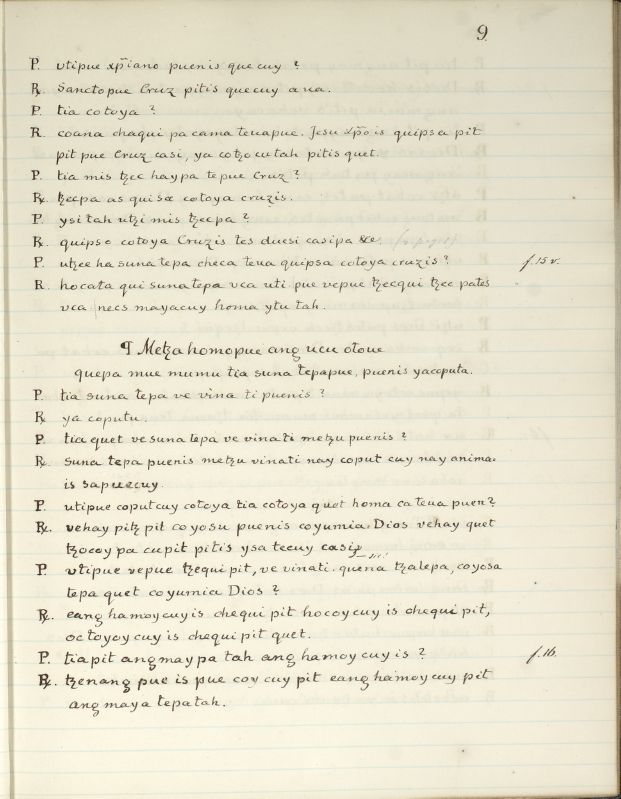 9
P. utipue xp̃iano puenis que cuy ?
R. Sanctopue Cruz pitis que cuy axa.
P. tia cotoya ?
R. coana chaqui pa cama teuapue. Jesu xp̃o is quipsa pit
pit pue Cruz casi, ya cotzo cu tah pitis quet.
P. tia mis tzec haypa te pue Cruz ?
R. tzecpa as qui sæ cotoya cruzis.
P. ysi tah utzi mis tzecpa ?
R. quipso cotoya Cruzis tes ducsi casipa &c.
P. utzec ha suna tepa checa teua quipsa cotoya cruzis ? f. 15 v.
R. hocata qui suna tepa uca uti pue vepue tzecqui tzec pates
uca necs mayacuy homa ytu tah.
¶ Metzahomopue ang ucu otoue
quepa mue mumu tia suna tepapue, puenis yacoputa.
P. tia suna tepa ve vina ti puenis ?
R. ya coputu.
P. tia quet ve suna tepa ve vinati metzu puenis ?
R. suna tepa puenis metzu vinati nay coput cuy nay anima
is sapuecuy.
P. utipue coput cuy cotoya tia cotoya quet homa ca teua puen ?
R. vehay pitz pit coyosu puenis coyumia Dios vehay quet
tzocoy pa cupit pitis ysa tecuy casip
P. utipue vepue tzequi pit, ve vinati quena tzalepa, coyosa
tepa quet coyumia Dios ?
R. eang hamoy cuy is chequi pit hocoy cuy is chequi pit,
octoyoy cuy is chequi pit quet.
P. tia pit angmay pa tah ang hamoy cuy is ? f. 16.
R. tzenang pue is pue coy cuy pit eang hamoy cuy pit
ang maya tepa tah.